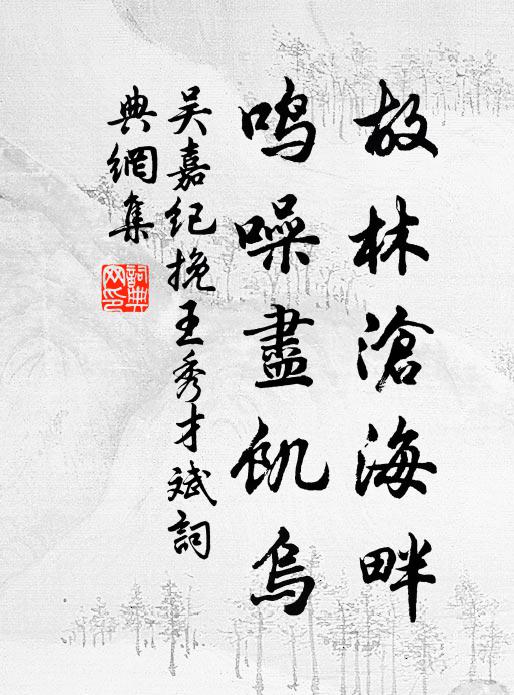 故林滄海畔
鳴噪盡飢烏
吴嘉纪挽王秀才斌詞
典網集
詞典網印